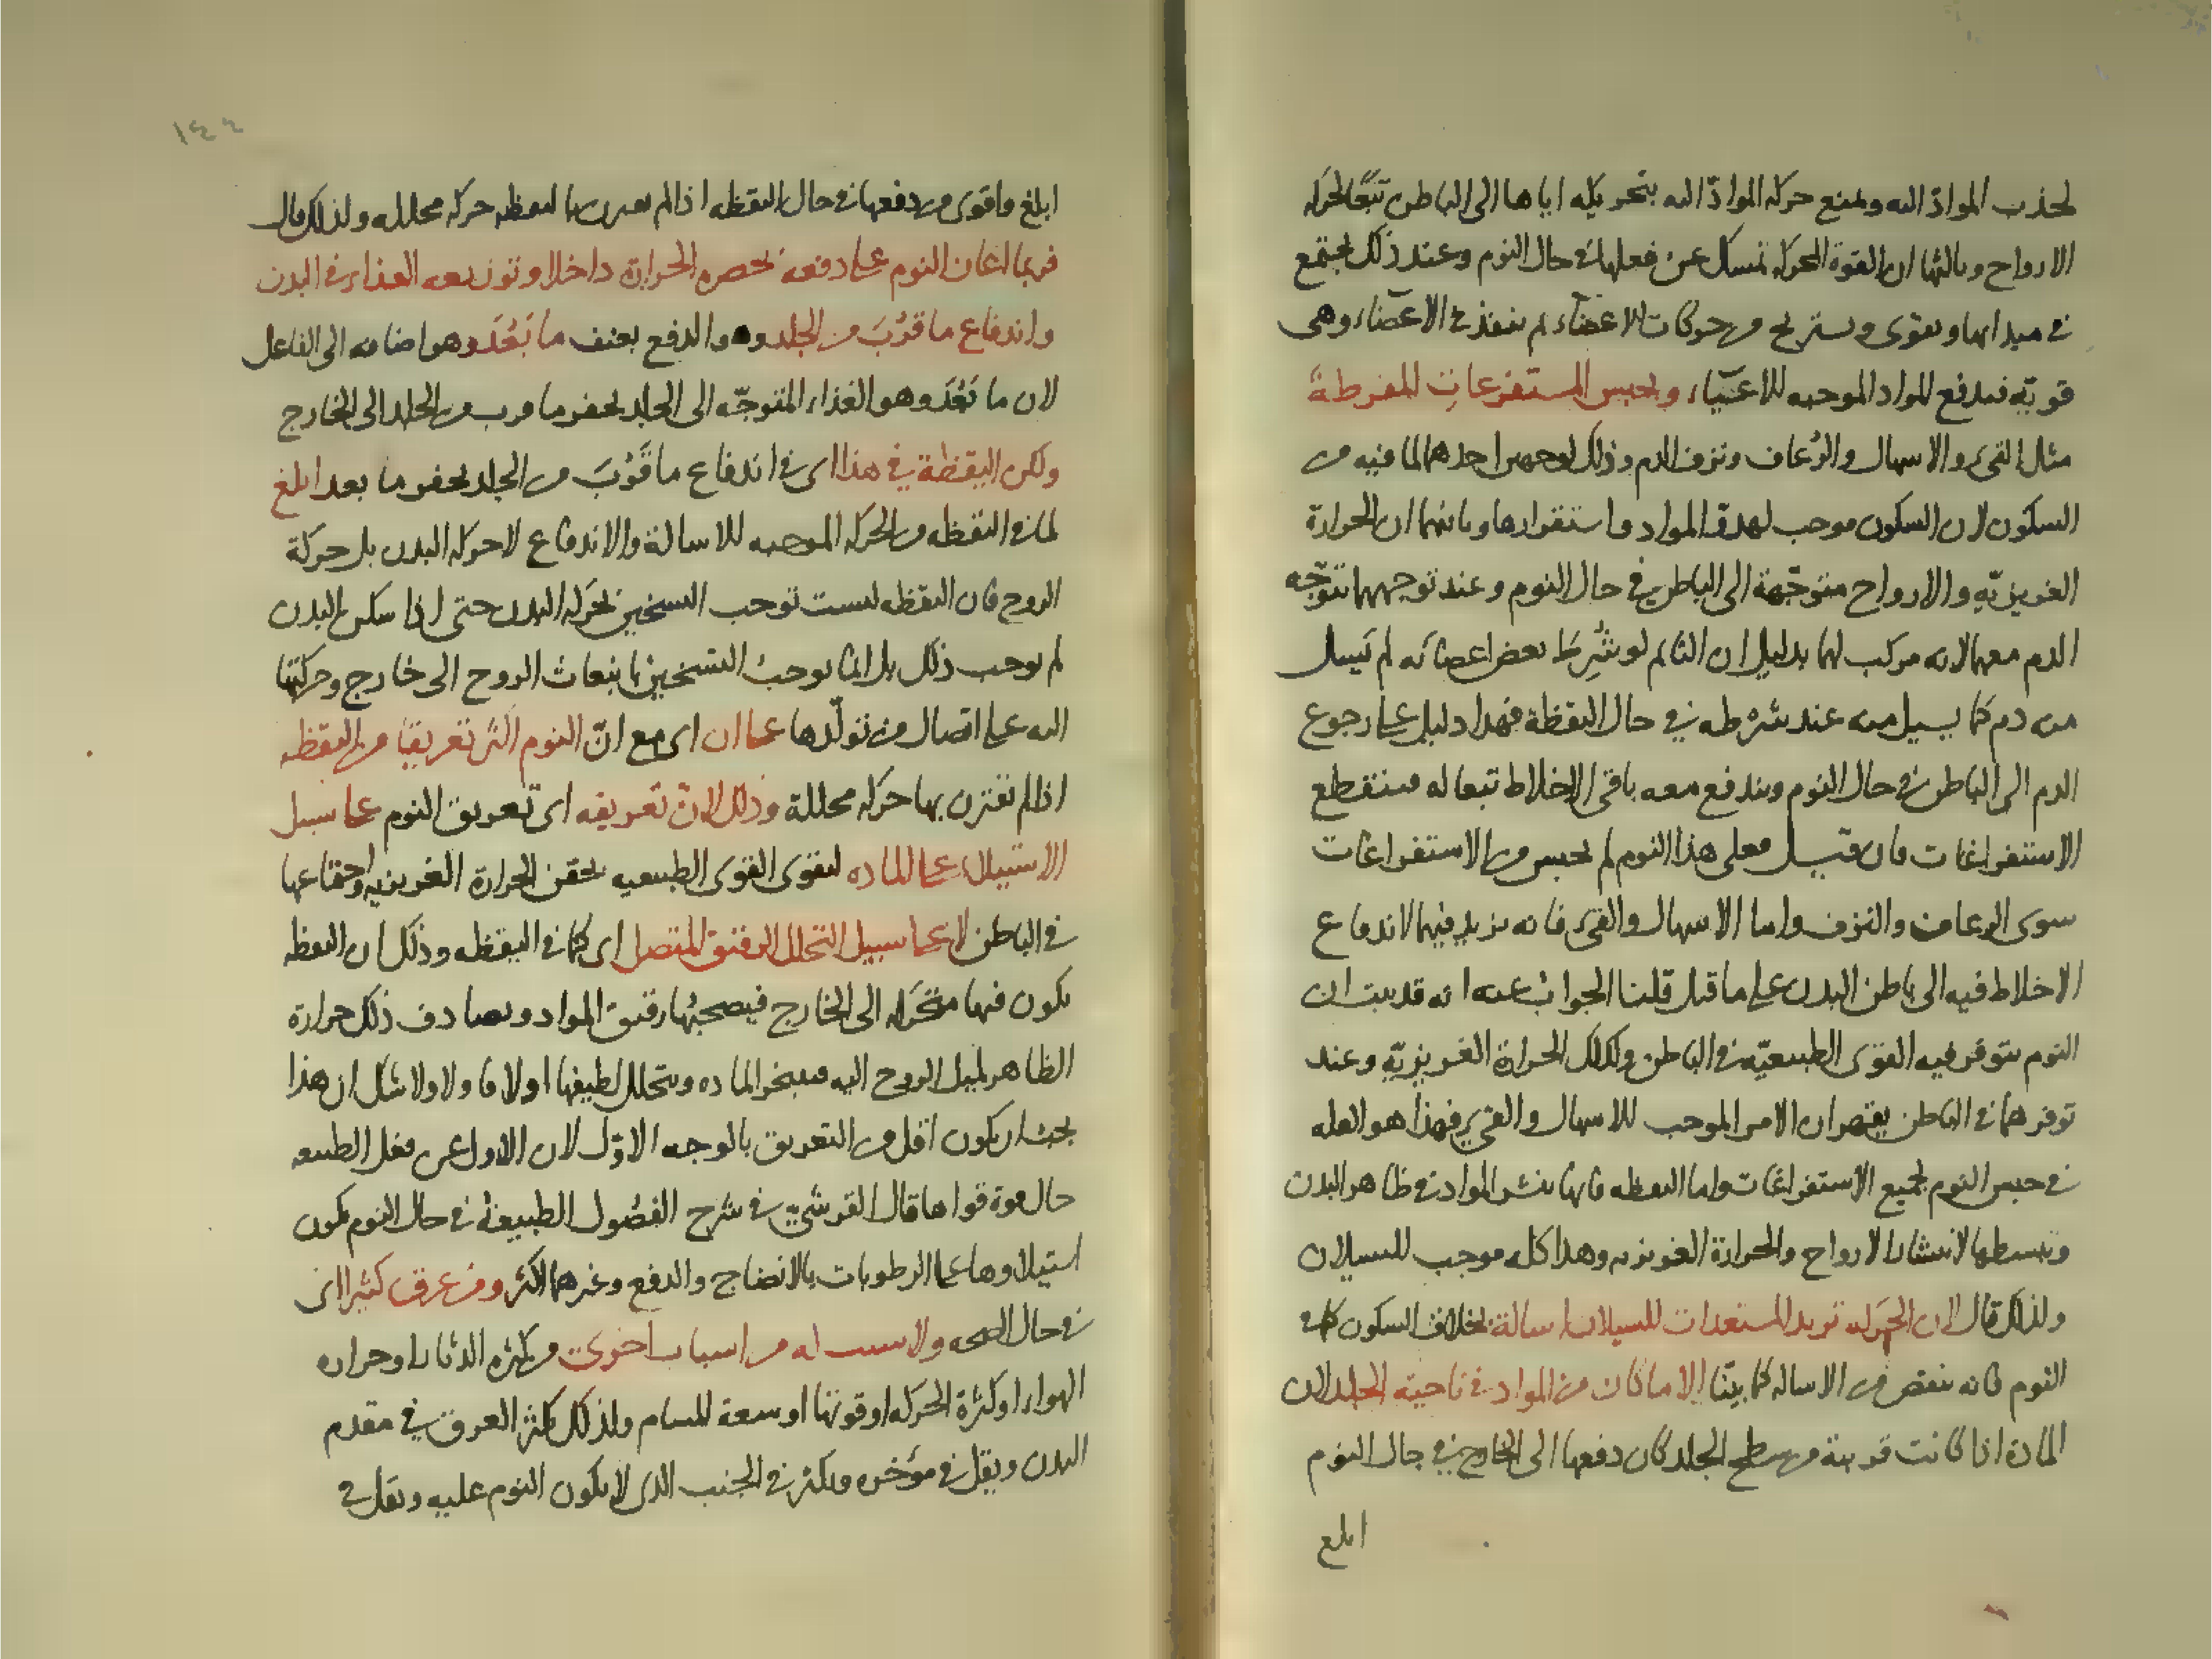 لجذب المواد اليه ويمنع حركه الموادّ اليه بتحريكه اياها الى الباطن تبعًا لحركه
الارواح وثالثها ان القوة المحركه تمسك عن فعلها في حال النوم وعند ذلك تجتمع
في مبدائها وتقوى وتستريح من حركات الاعضاء ثم تنفذ في الاعضاء وهى
قويّه فتدفع المواد الموجبه للاعياء ويحبس المستفرغات المفرطة
مثل القىء والاسهال والرُعاف ونزف الدم وذلك لوجهين احدهما لما فيه من
السكون لان السكون موجب لهدوّ المواد واستقرارها وثانيهما ان الحرارة
الغريزيّه والارواح متوجّهة الى الباطن في حال النوم وعند توجههما تتوجّه
الدم معهما لانه مركب لهما بدليل ان النائم لو شُرِط بعض اعضائه لم يَسِل
منه دم كما يسيل منه عند شرطه في حال اليقظة فهذا دليل على رجوع
الدم الى الباطن في حال النوم ويندفع معه باقى الاخلاط تبعا له فتنقطع
الاستفراغات فان قيل فعلى هذا النوم لم يحبس من الاستفراغات
سوى الرعاف والنزف واما الاسهال والقىء فانه يزيد فيهما لاندفاع
الاخلاط فيه الى باطن البدن على ما قيل قلنا الجواب عنه انه قد ثبت ان
النوم تتوفر فيه القوى الطبيعيّه في الباطن وكذلك الحرارة الغريزيّه وعند
توفرهما في الباطن يقهران الامر الموجب للاسهال والقىء فهذا هو العله
في حبس النوم لجميع الاستفراغات واما اليقظه فانها تنشر المواد في ظاهر البدن
وتبسطها لانتشار الارواح والحرارة الغريزيه وهذا كله موجب للسيلان
ولذلك قال لان الحركه تزيد المستعدات للسيلان اسالة بخلاف السكون في
النوم فانه ينقص من الاساله كما بيّنا الا ما كان من المواد في ناحية الجلد لان
المادة اذا كانت قريبة من سطح الجلد كان دفعها الى الخارج في حال النوم
ابلغ
١٤٢
ابلغ واقوى من دفعها في حال اليقظه اذا لم يقترن باليقظه حركه محلله ولذلك قال
فربما اعان النوم على دفعه بحصره الحرارة داخلا وتوزيعه الغذاء في البدن
واندفاع ما قَرُبَ من الجلد والدفع بعنف ما بَعُدَ وهو اضافه الى الفاعل
لان ما بَعُدَ وهو الغذاء المتوجّه الى الجلد يحفز ما قرب من الجلد الى الخارج
ولكن اليقظة في هذا اى في اندفاع ما قَرُبَ من الجلد بحفز ما بعد ابلغ
لما في اليقظه من الحركه الموجبه للاسالة والاندفاع لا حركه البدن بل حركة
الروح فان اليقظه ليست توجب التسخين بحركه البدن حتى اذا سكن البدن
لم يوجب ذلك بل انما يوجب التسخين بانبعاث الروح الى خارج وحركتها
اليه على اتصال من تولّدها على ان اى مع انّ النوم اكثر تعريقا من اليقظه
اذا لم تقترن بها حركه محللة وذلك لانّ تعريقه اى تعريق النوم على سبيل
الاستيلاء على الماده لتقوى القوى الطبيعيه بحقن الحرارة الغريزيه واجتماعها
في الباطن لا على سبيل التحلل الرقيق المتصل اى كما في اليقظه وذلك ان اليقظه
يكون فيها متحركه الى الخارج فيصحبها رقيق المواد ويصادف ذلك حرارة
الظاهر لميل الروح اليه فيبخر الماده ويتحلل لطيفها اولا فاولا ولا شك ان هذا
يجب ان يكون اقل من التعريق بالوجه الاوّل لان الاول عن فعل الطبيعه
حال قوة قواها قال القرشىّ في شرح الفصُول الطبيعةُ في حال النوم يكون
استيلاوها على الرطوبات بالانضاج والدفع وغيرهما اكثر ومن عرق كثيرا اى
في حال الصحه ولا سبب له من اسباب اخرى من كثره الدثار او حراره
الهواء او كثرة الحركه او قوتها او سعة المسام ولذلك يكثر العرق في مقدم
البدن ويقل في مؤخره ويكثر في الجنب الذى لا يكون النوم عليه ويقل في